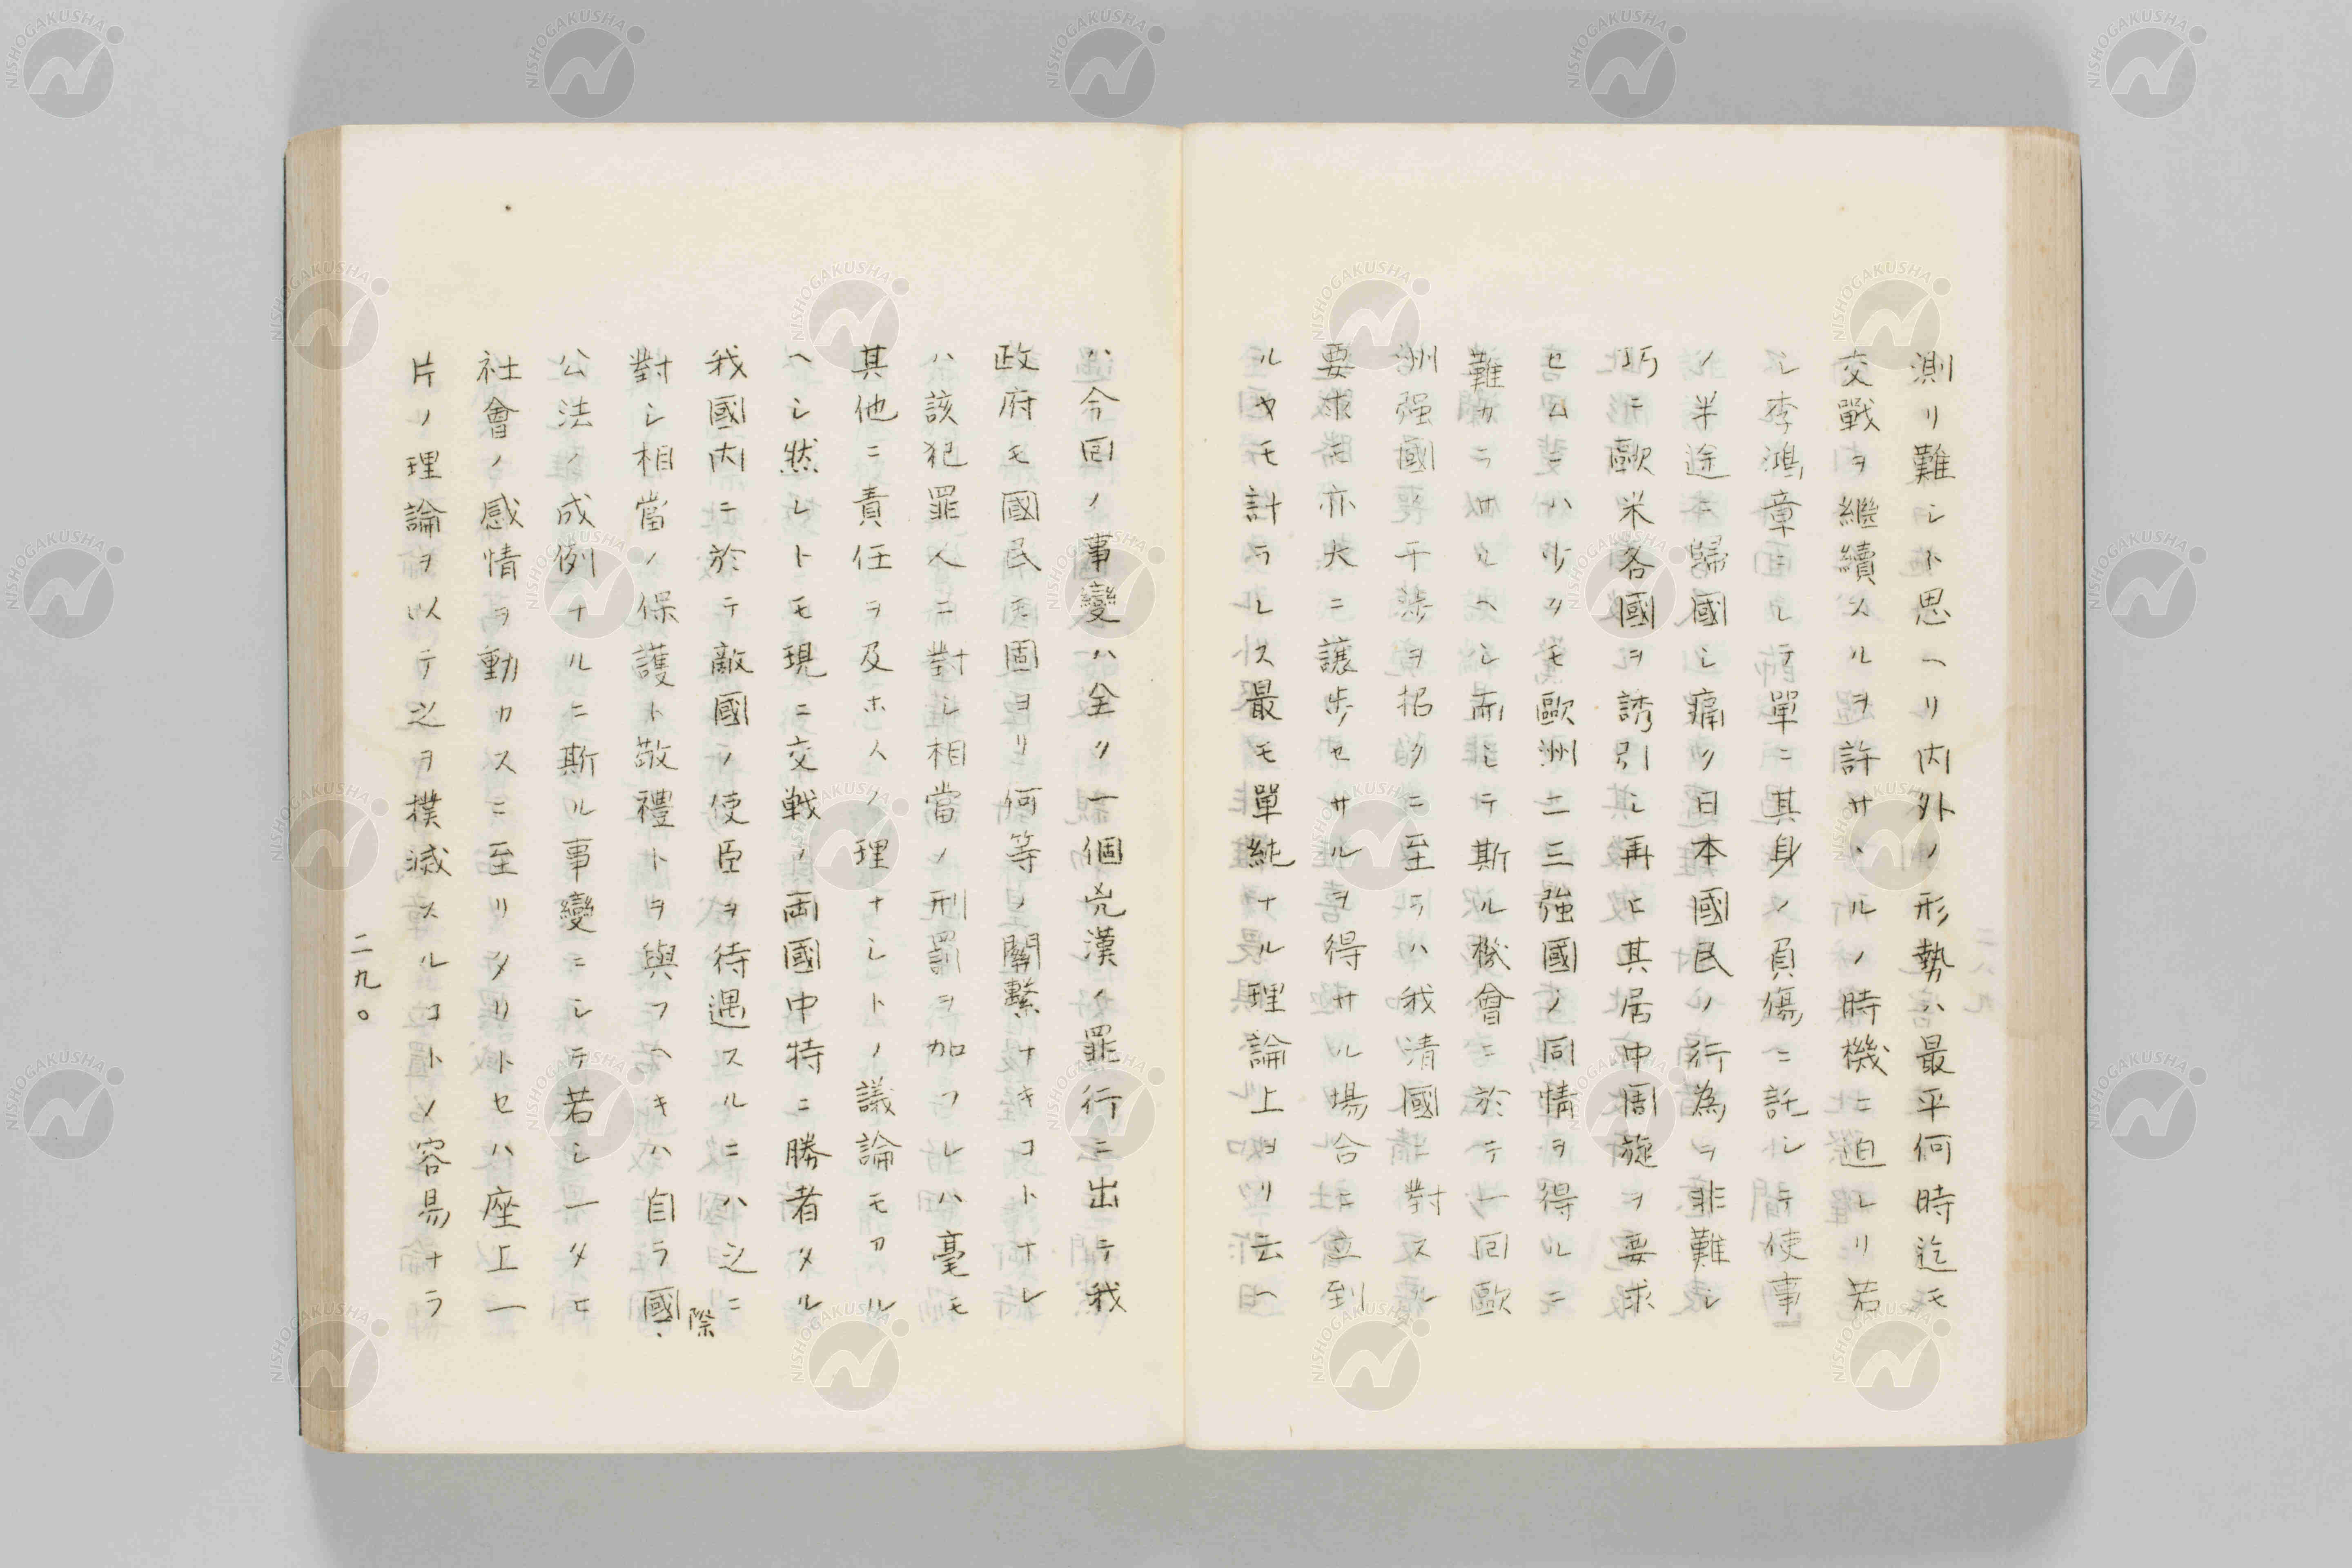 測リ難シト思ヘリ内外ノ形勢ハ最平何時迄モ
交戰ヲ繼續スルヲ許サヽルノ時機ニ迫レリ若
シ李鴻章ニシテ單ニ其身ノ負傷ニ託シテ使事
ノ半途ニ歸國シ痛ク日本國民ノ行為ヲ非難シ
巧ニ歐米各國ヲ誘引シ再ヒ其居中周旋ヲ要求
セムニハ少クモ歐洲二三強國ノ同情ヲ得ルニ
難カラサルヘシ而シテ斯ル機會ニ於テ一回歐
洲强國ノ干渉ヲ招クニ至ラハ我清國ニ對スル
要求モ亦大ニ譲歩セサルヲ得サル場合ニ立到
ルヤモ計ラレス最モ單純ナル理論上ヨリ云ヘ
ハ今回ノ事變ハ全ク一個兇漢ノ罪行ニ出テ我
政府モ國民モ固ヨリ何等ノ關繫ナキコトナレ
ハ該犯罪人ニ對シ相當ノ刑罰ヲ加フレハ毫モ
其他ニ責任ヲ及ホスノ理ナシトノ議論モアル
ヘシ然レトモ現ニ交戦ノ両國中特ニ勝者タル
我國内ニ於テ敵國ノ使臣ヲ待遇スルニハ之ニ
對シ相當ノ保護ト敬禮トヲ與フヘキハ自ラ國際
公法ノ成例ナルニ斯ル事變ニシテ若シ一タヒ
社會ノ感情ヲ動カスニ至リタリトセハ座上一
片ノ理論ヲ以テ之ヲ撲滅スルコトノ容易ナラ
二九〇
NISHOGAKUSHA